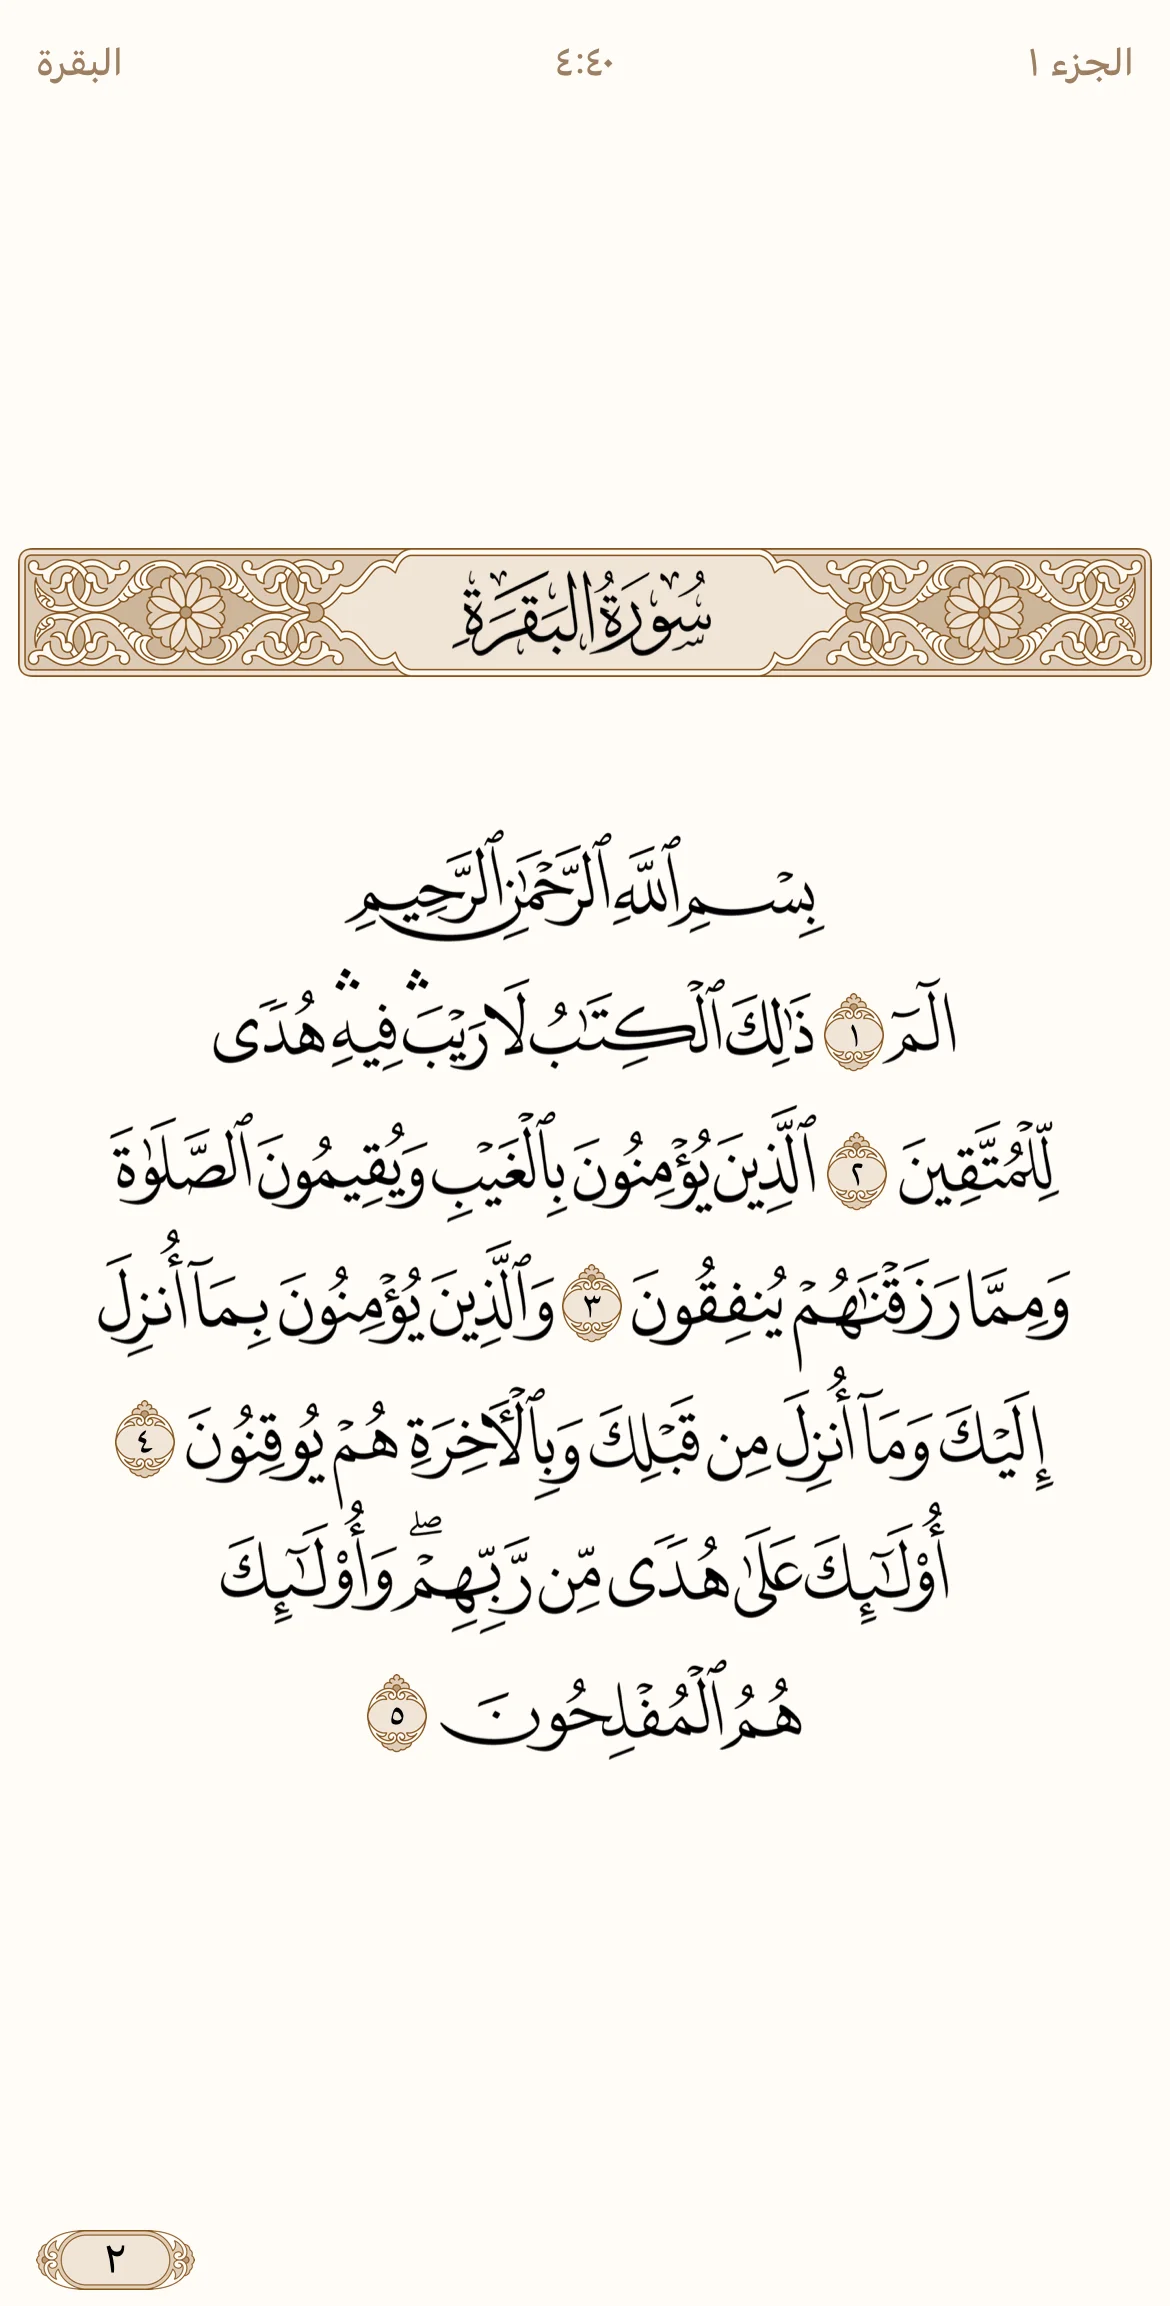 الجزء ١
٤:٤٠
البقرة
سُورَةُ البَقَرَةِ
بِسْمِ ٱللَّهِ ٱلرَّحْمَٰنِ ٱلرَّحِيمِ
الٓمٓ ١ ذَٰلِكَ ٱلْكِتَٰبُ لَا رَيْبَۛ فِيهِۛ هُدًى
لِّلْمُتَّقِينَ ٢ ٱلَّذِينَ يُؤْمِنُونَ بِٱلْغَيْبِ وَيُقِيمُونَ ٱلصَّلَوٰةَ
وَمِمَّا رَزَقْنَٰهُمْ يُنفِقُونَ ٣ وَٱلَّذِينَ يُؤْمِنُونَ بِمَآ أُنزِلَ
إِلَيْكَ وَمَآ أُنزِلَ مِن قَبْلِكَ وَبِٱلْأَخِرَةِ هُمْ يُوقِنُونَ ٤
أُوْلَٰٓئِكَ عَلَىٰ هُدًى مِّن رَّبِّهِمْۖ وَأُوْلَٰٓئِكَ
هُمُ ٱلْمُفْلِحُونَ ٥
٢